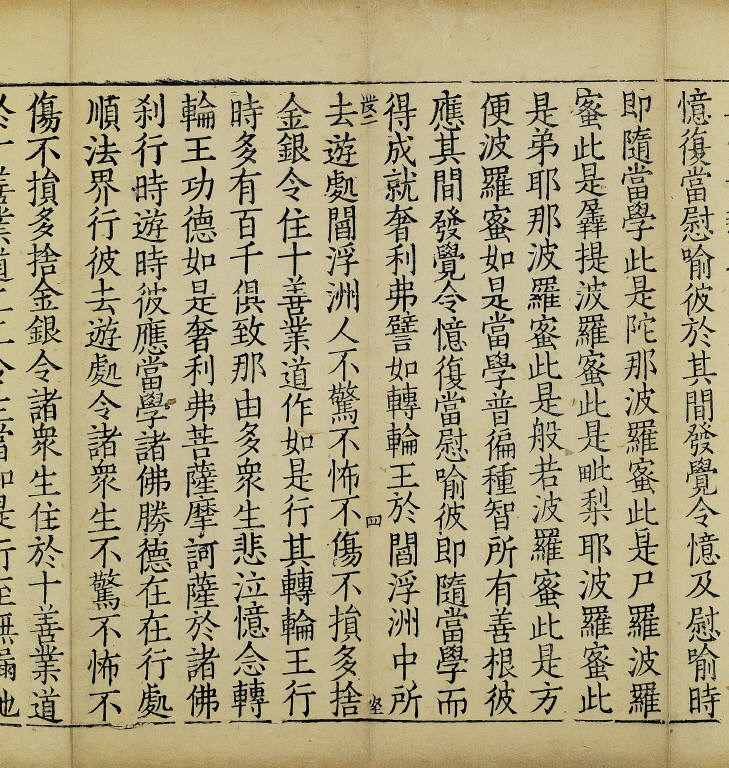 憶復當慰喻彼於其間發覺令憶及慰喻時
即隨當學此是陀那波羅蜜此是尸羅波羅
蜜此是羼提波羅蜜此是毗梨耶波羅蜜此
是弟耶那波羅蜜此是般若波羅蜜此是方
便波羅蜜如是當學普徧種智所有善根彼
應其間發覺令憶復當慰喻彼即隨當學而
得成就奢利弗譬如轉輪王於閻浮洲中所
四
去遊處閻浮洲人不驚不怖不傷不損多捨
金銀令住十善業道作如是行其轉輪王行
時多有百千俱致那由多衆生悲泣憶念轉
輪王功德如是奢利弗菩薩摩訶薩於諸佛
刹行時遊時彼應當學諸佛勝德在在行處
順法界行彼去遊處令諸衆生不驚不怖不
傷不損多捨金銀令諸衆生住於十善業道
善業道
是行至無漏地